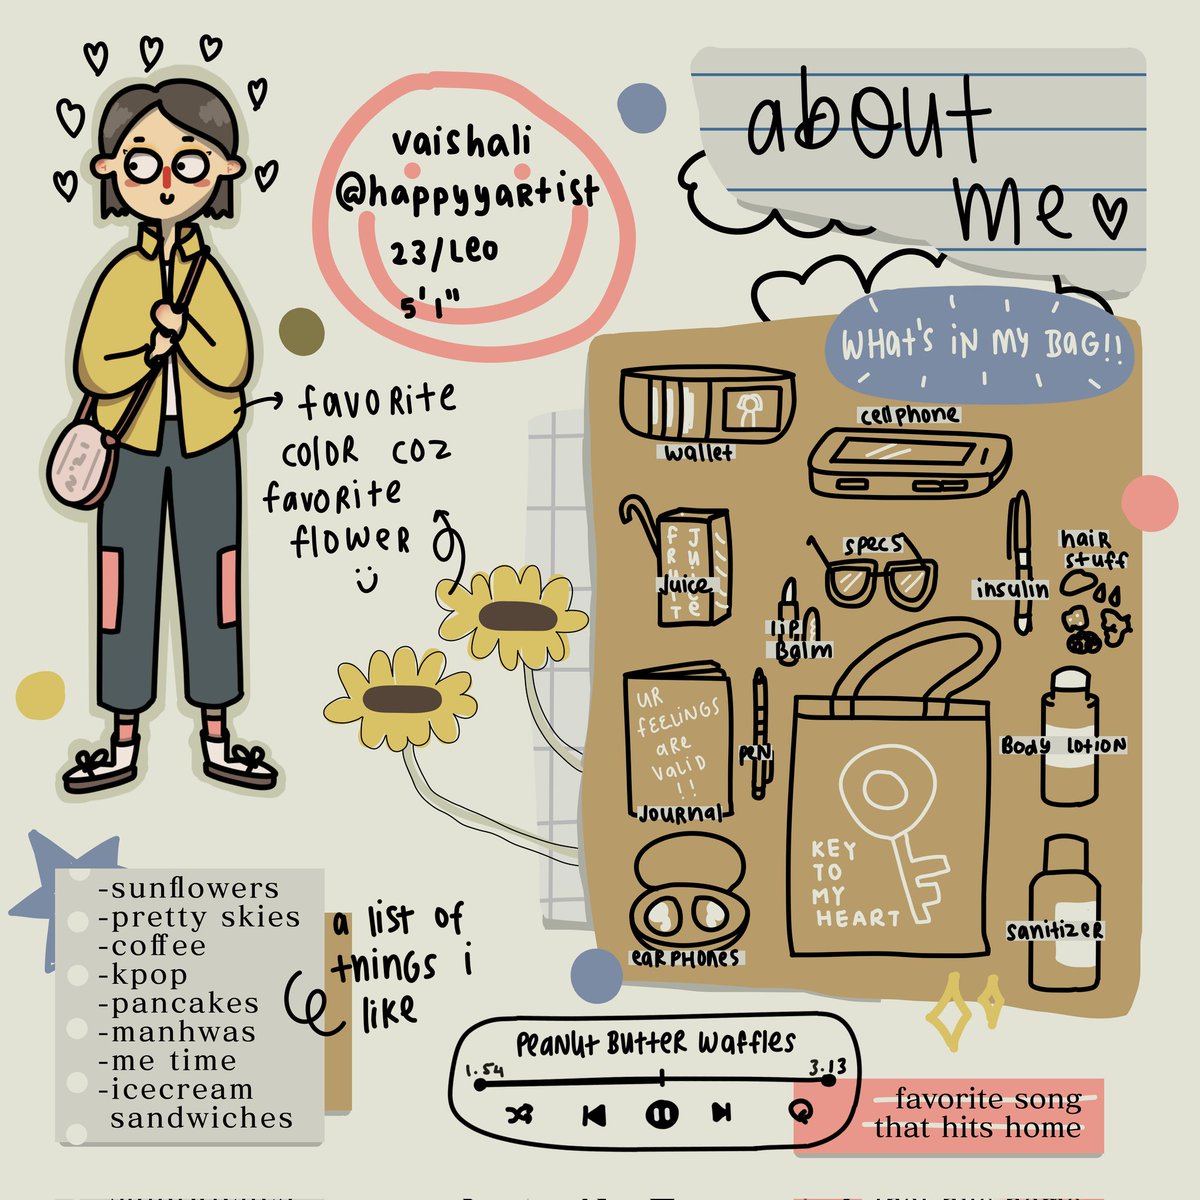 about
me
vaishali
@happyyartist
23/Leo
5'1"
favorite
color coz
favorite
flower
WHAT'S IN MY BAG!!
wallet
cellphone
FRUITE
JUICE
Juice
specs
insulin
hair
stuff
lip
Balm
UR
FEELINGS
are
valid
!!
Journal
pen
KEY
TO
MY
HEART
Body Lotion
earphones
sanitizer
-sunflowers
-pretty skies
-coffee
-kpop
-pancakes
-manhwas
-me time
-icecream
sandwiches
a list of
things i
like
Peanut Butter Waffles
1.54
3.13
favorite song
that hits home